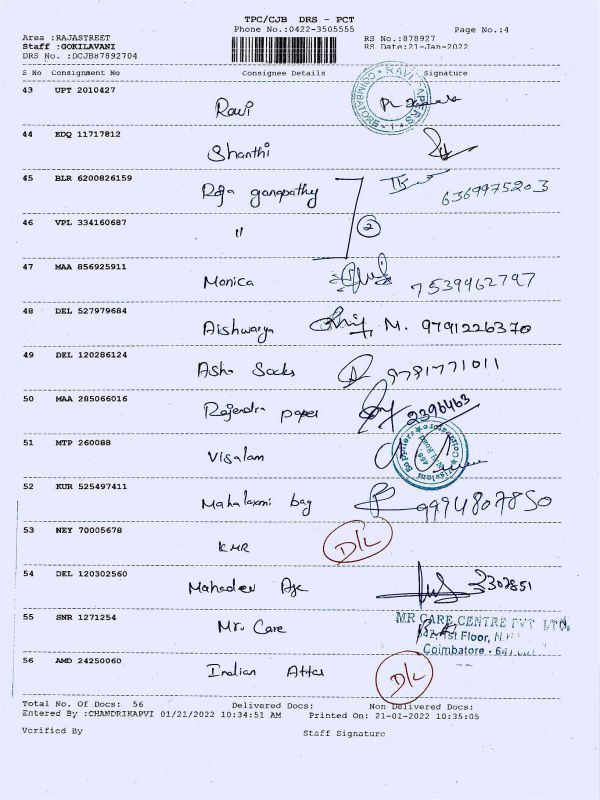 TPC/CJB DRS - PCT
Phone No.:0422-3505555 Page No.:4
Area :RAJASTREET RS No.:878927
Staff :GOKILAVANI RS Date:21-Jan-2022
DRS No. :DCJB87892704
S No Consignment No Consignee Details Signature
43 UPT 2010427
Ravi
RAVI PAPERS COIMBATORE - 1
44 EDQ 11717812
Shanthi
45 BLR 6200826159
Raja ganapathy 6369975203
46 VPL 334160687
" 2
47 MAA 856925911
Monica 7539962797
48 DEL 527979684
Aishwarya M. 9791226370
49 DEL 120286124
Asha Socks 9781771011
50 MAA 285066016
Rajendra paper 2396463
51 MTP 260088
Visalam
52 KUR 525497411
Mahalaxmi bag 9994807850
53 NEY 70005678
KMR D/L
54 DEL 120302560
Mahadev Age
55 SNR 1271254
Mr. Care
MR CARE CENTRE PVT LTD,
642, 1st Floor,
Coimbatore - 641
56 AMD 24250060
Indian Attar D/L
Total No. Of Docs: 56 Delivered Docs: Non Delivered Docs:
Entered By :CHANDRIKAPVI 01/21/2022 10:34:51 AM Printed On: 21-01-2022 10:35:05
Verified By Staff Signature